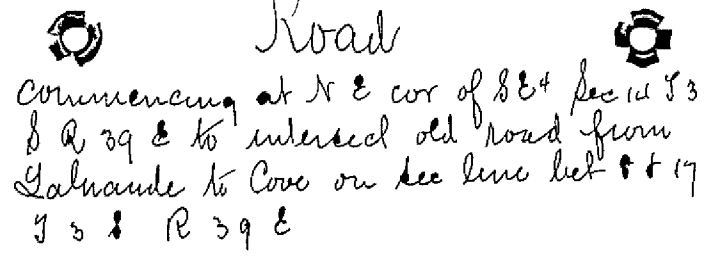 Road
Commencing at N E cor of S E 4 Sec 14 T 3
S R 39 E to intersect old road from
LaGrande to Cove on sec line bet 8 & 17
T 3 S R 39 E